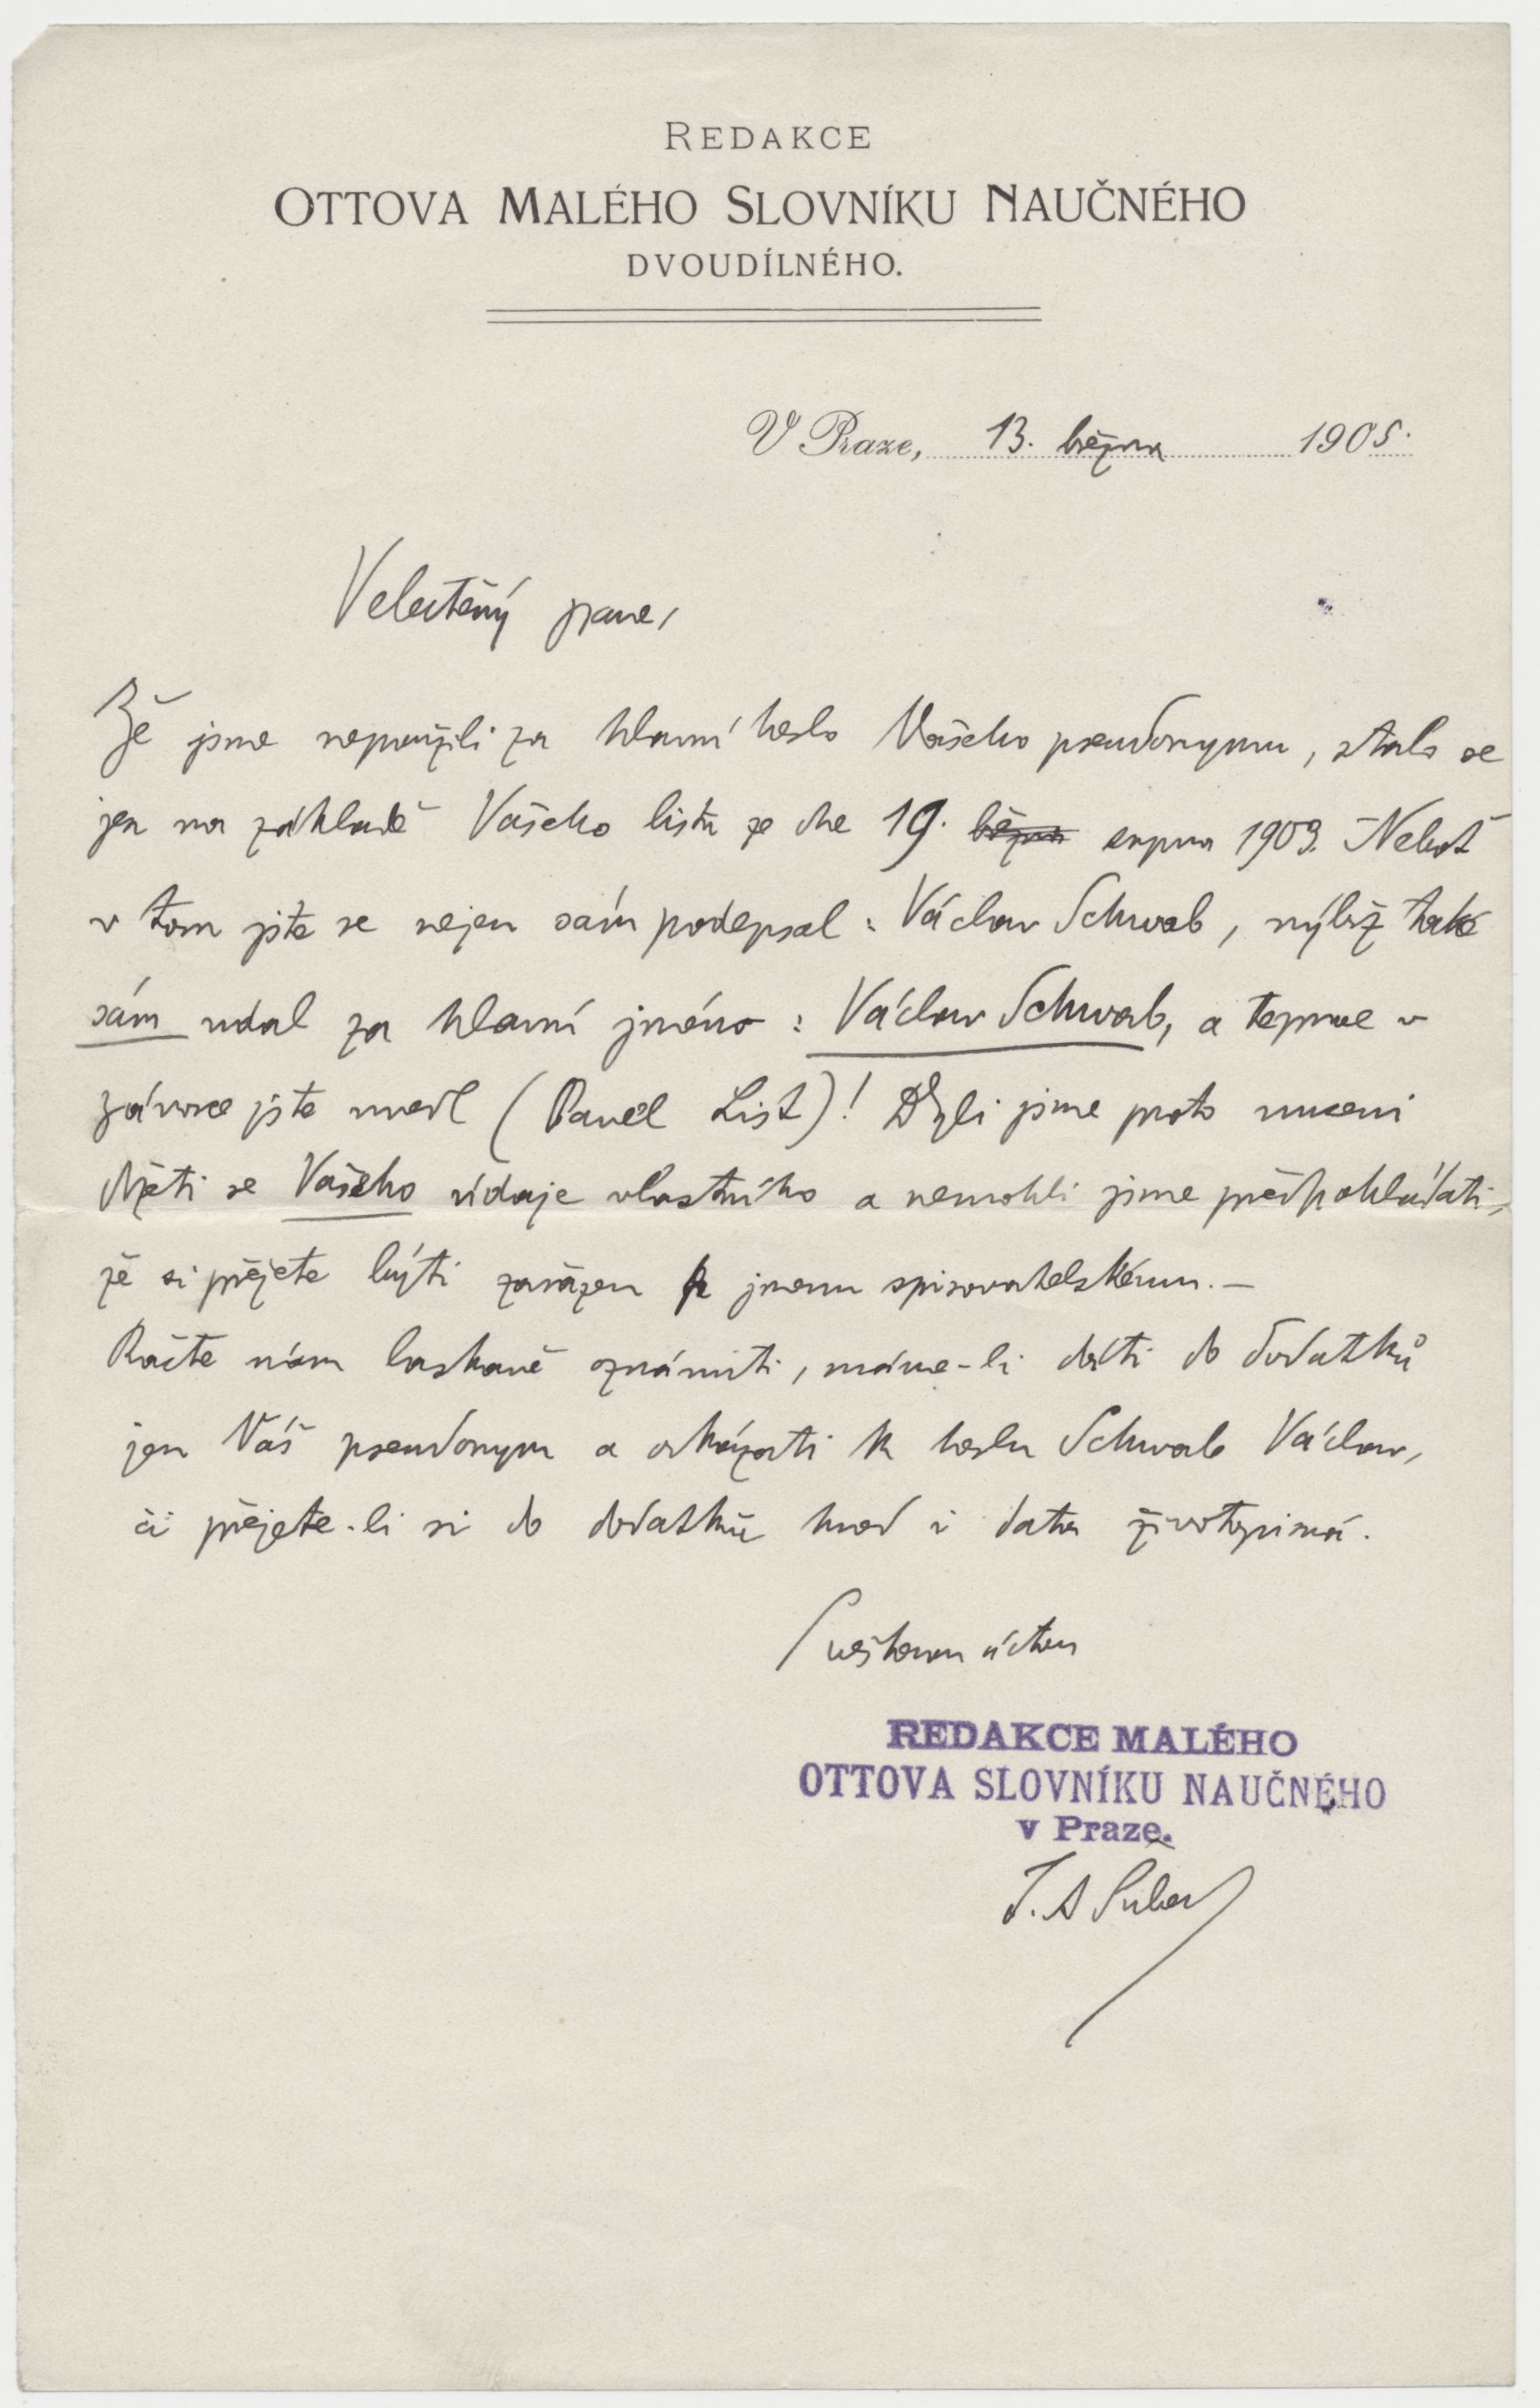 REDAKCE
OTTOVA MALÉHO SLOVNÍKU NAUČNÉHO
DVOUDÍLNÉHO.
V Praze, 13. března 1905.
Velectěný pane,
Že jsme nepoužili za hlavní heslo Vašeho pseudonymu, stalo se
jen na základě Vašeho listu ze dne 19. března srpna 1903. Neboť
v tom jste se nejen sám podepsal: Václav Schwab, nýbrž také
sám udal za hlavní jméno: Václav Schwab, a teprve v
závorce jste uvedl (Pavel List)! Byli jsme proto nuceni
držeti se Vašeho údaje vlastního a nemohli jsme předpokládati,
že si přejete býti zařazen k jmenu spisovatelskému. —
Račte nám laskavě oznámiti, máme-li dáti do dodatků
jen Váš pseudonym a odkázati k heslu Schwab Václav,
či přejete-li si do dodatků hned i data životopisná.
S veškerou úctou
REDAKCE MALÉHO
OTTOVA SLOVNÍKU NAUČNÉHO
v Praze.